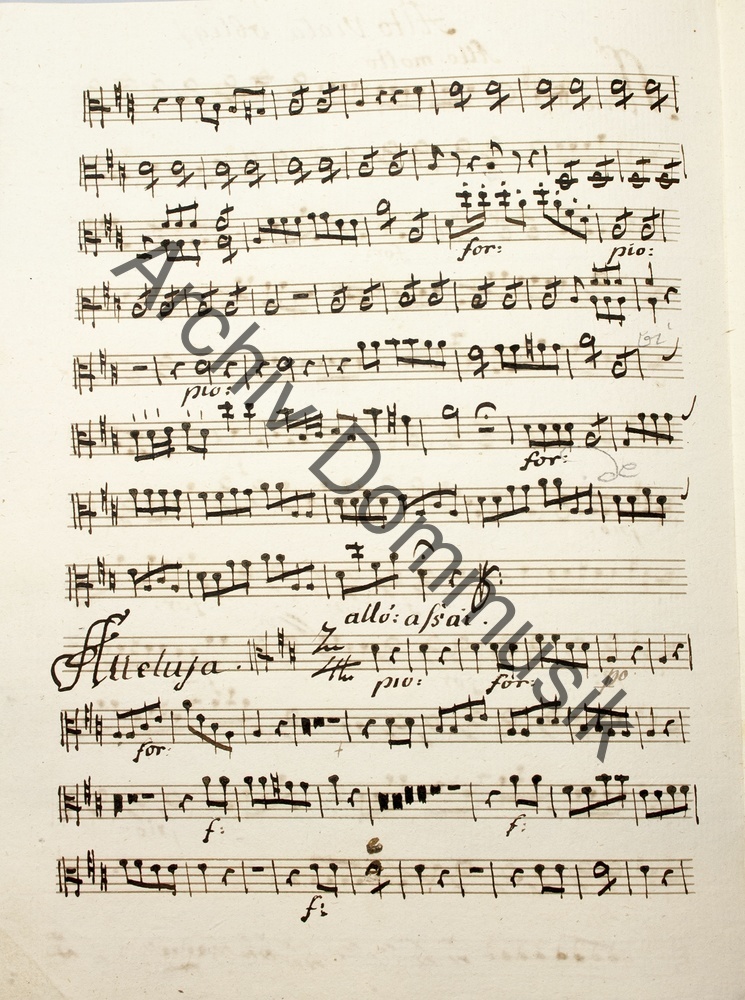 for: pio:
pio:
for:
de
allo: assai.
Alleluja.
pio: for: po
for:
f: f:
f:
Archiv Dommusik